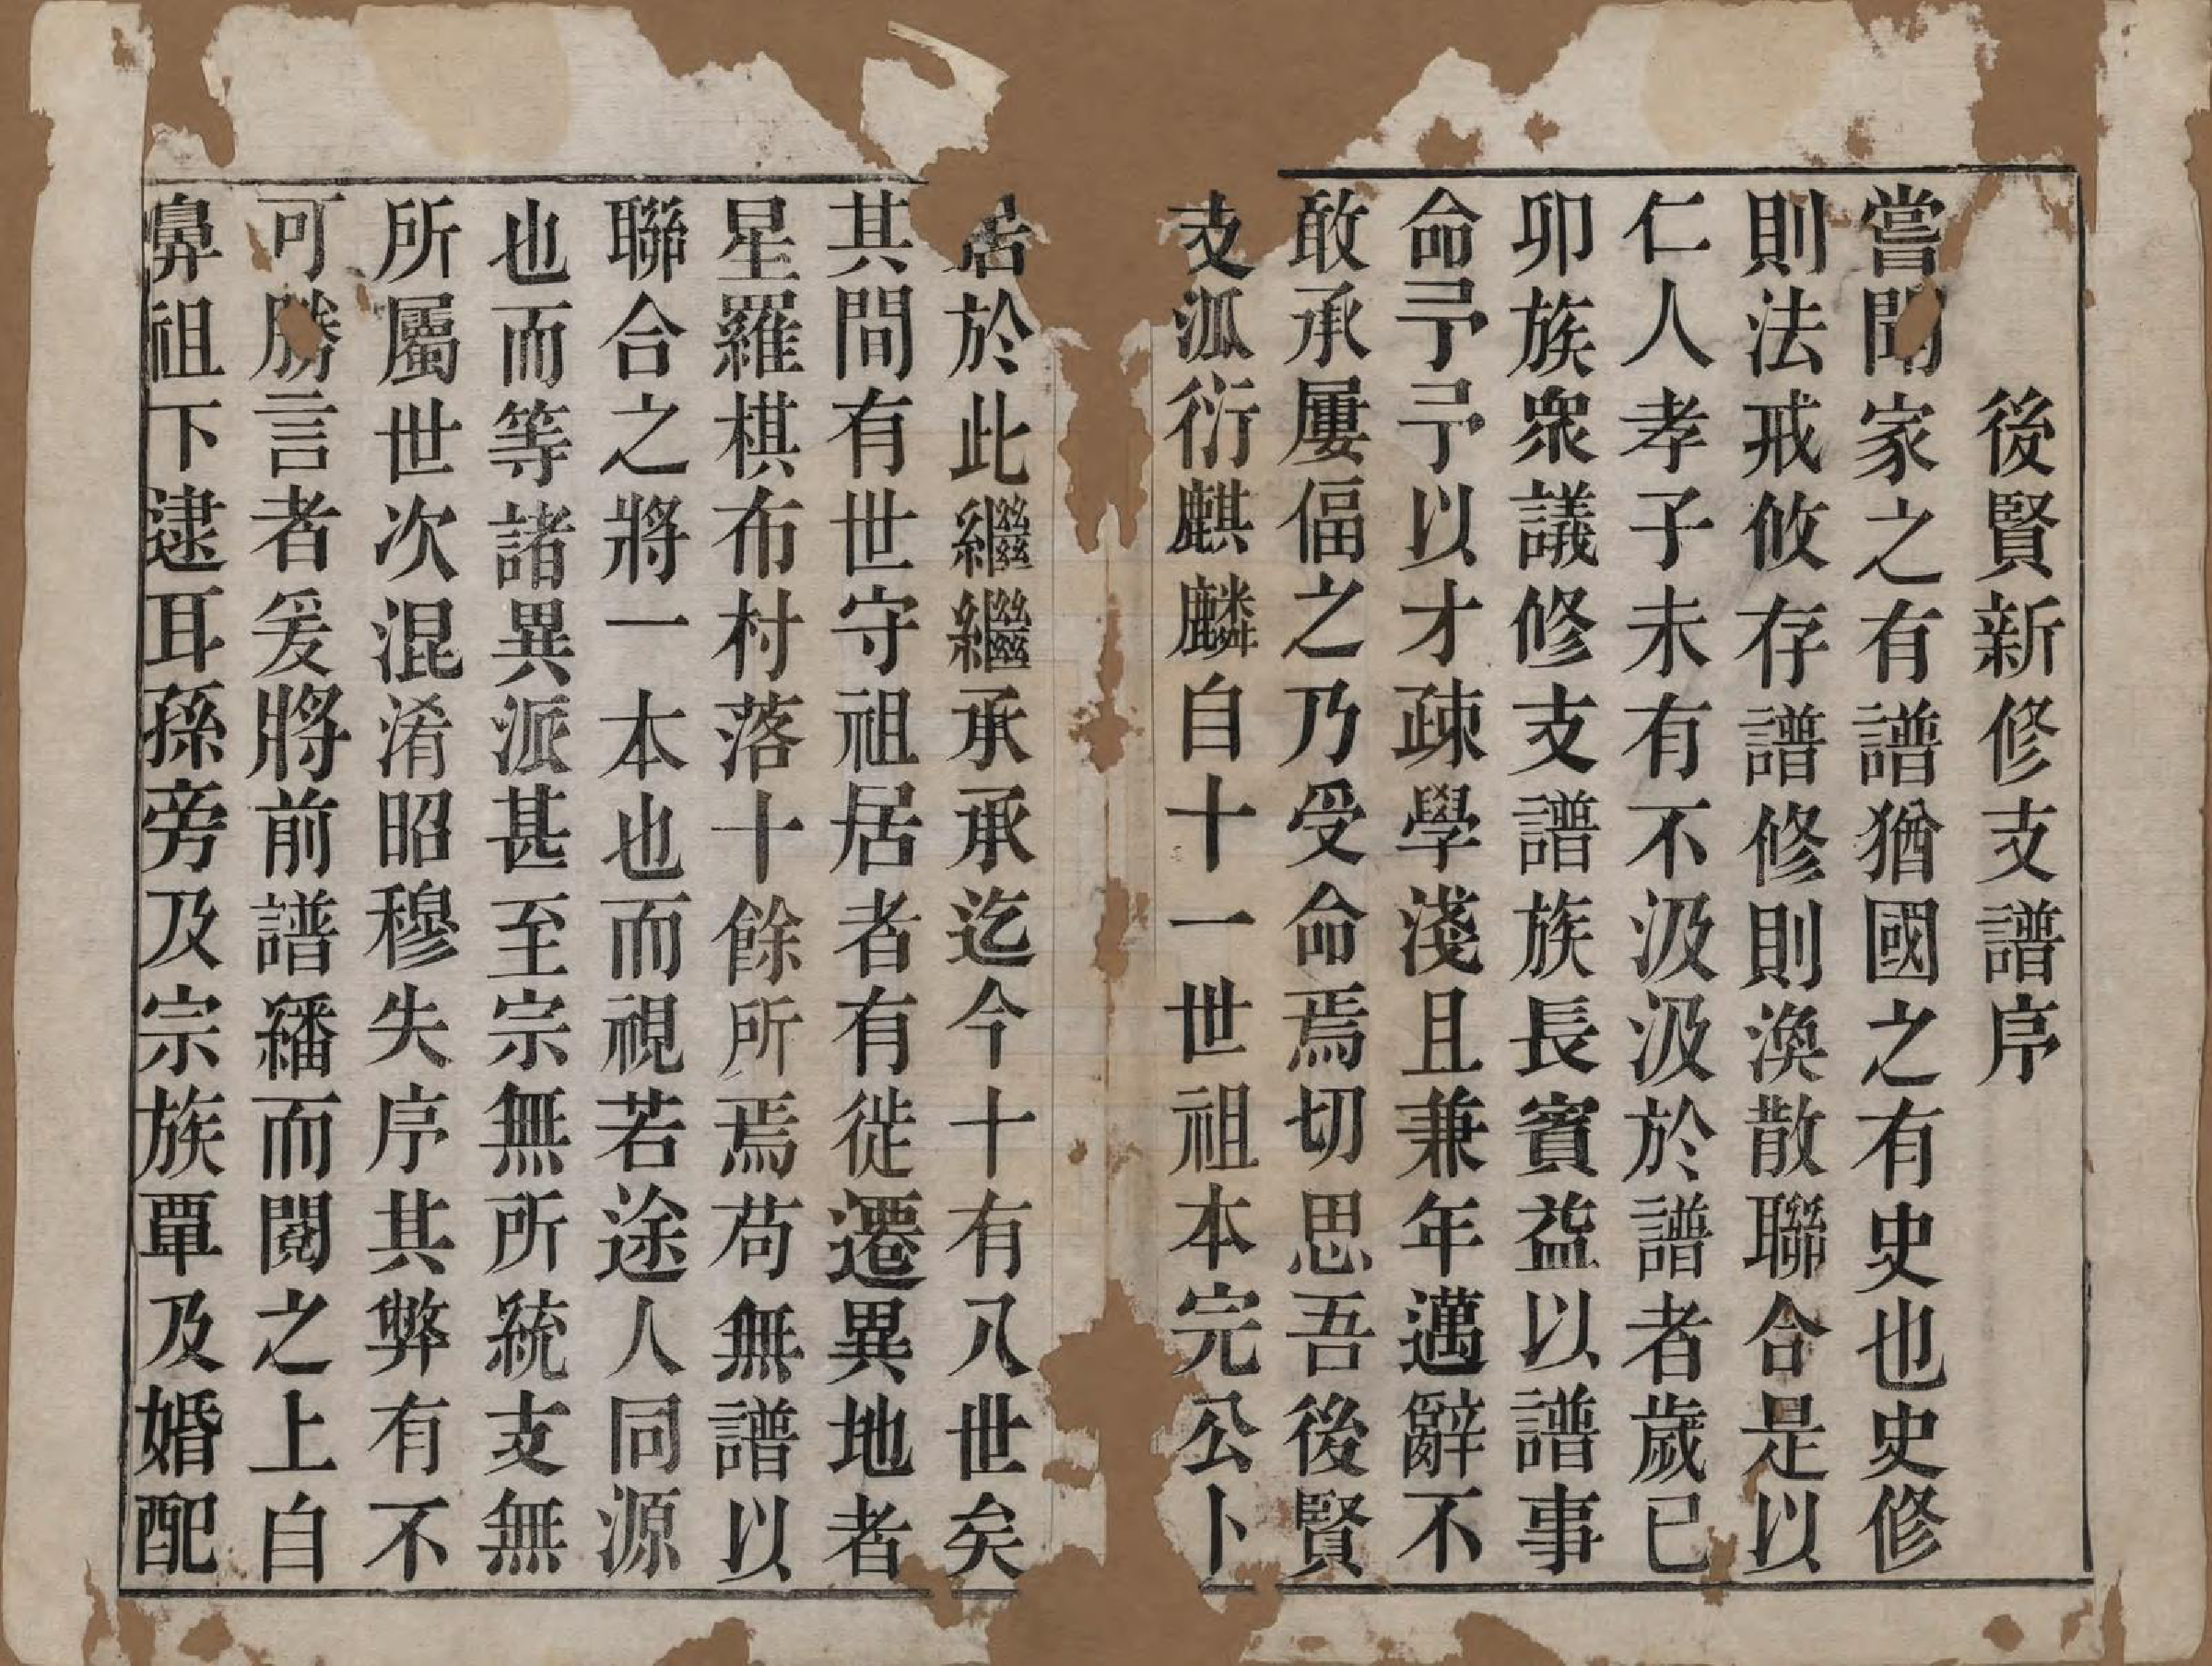 後賢新修支譜序
嘗聞家之有譜猶國之有史也史修
則法戒攸存譜修則渙散聯合是以
仁人孝子未有不汲汲於譜者歲已
卯族衆議修支譜族長賓益以譜事
命予予以才疎學淺且兼年邁辭不
敢承屢偪之乃受命焉切思吾後賢
支派衍麒麟自十一世祖本完公卜
居於此繼繼承承迄今十有八世矣
其間有世守祖居者有徙遷異地者
星羅棋布村落十餘所焉苟無譜以
聯合之將一本也而視若途人同源
也而等諸異派甚至宗無所統支無
所屬世次混淆昭穆失序其弊有不
可勝言者爰將前譜繙而閱之上自
鼻祖下逮耳孫旁及宗族覃及婚配